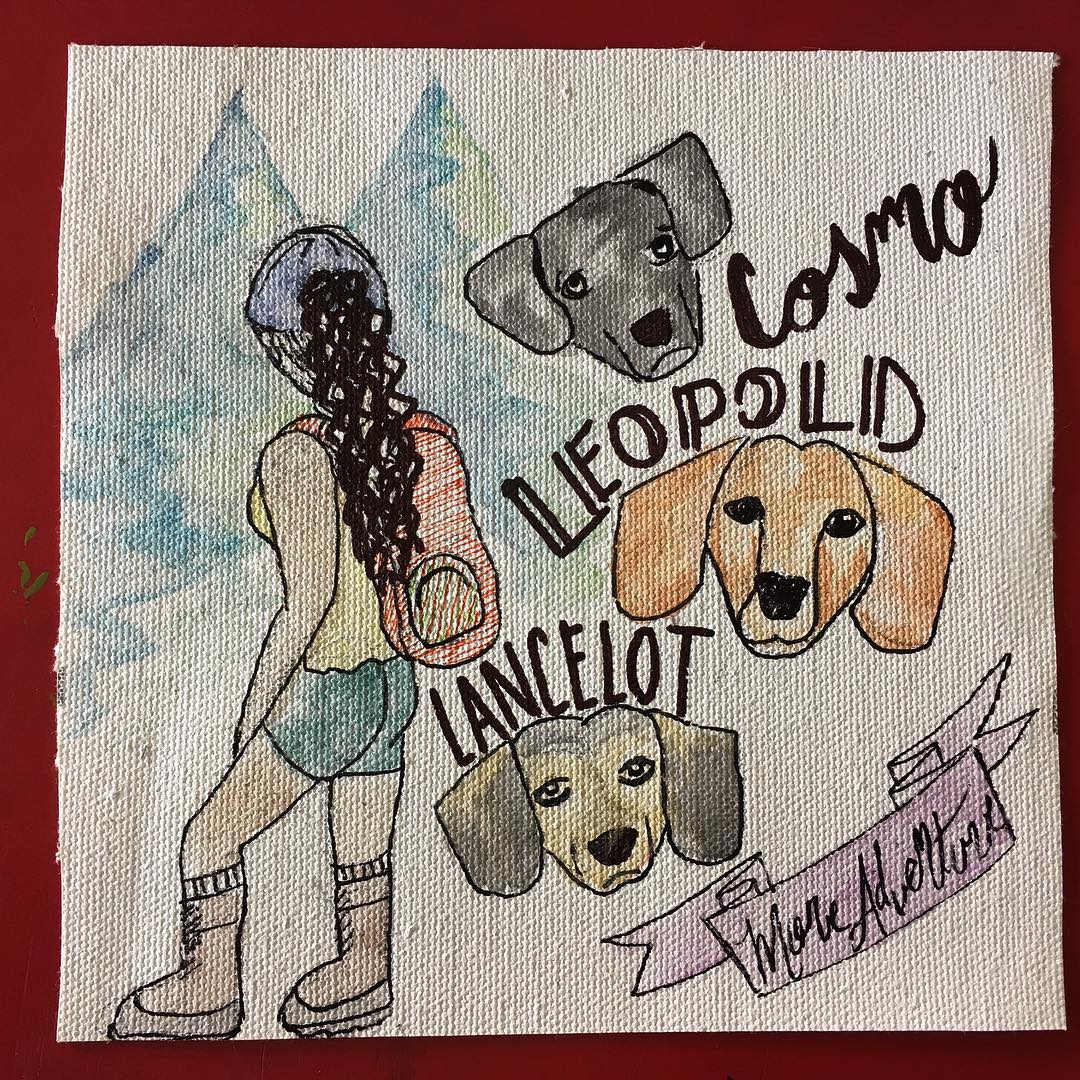 Cosmo
LEOPOLD
LANCELOT
More Adventure